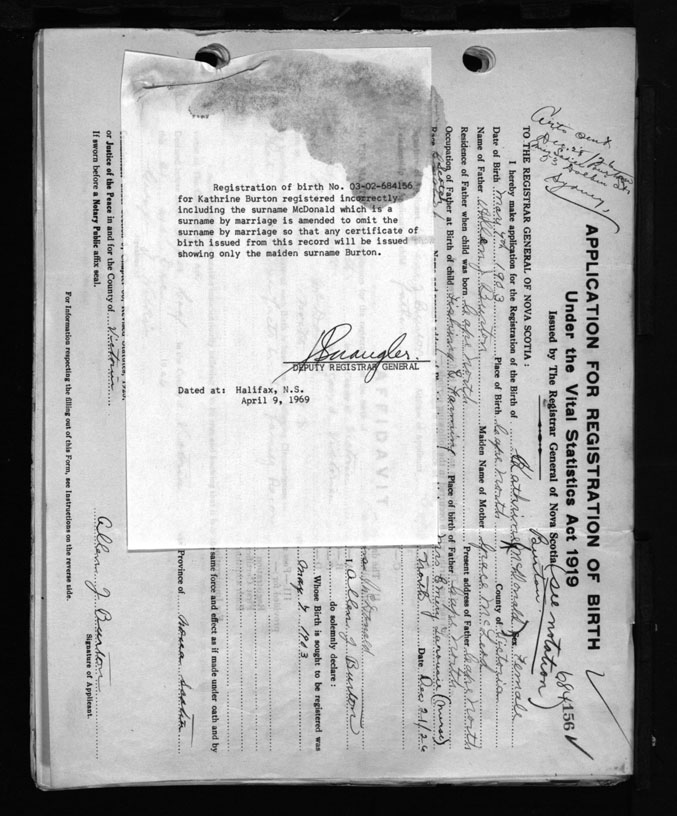 Registration of birth No. 03-02-684156
for Kathrine Burton registered incorrectly
including the surname McDonald which is a
surname by marriage is amended to omit the
surname by marriage so that any certificate of
birth issued from this record will be issued
showing only the maiden surname Burton.
DEPUTY REGISTRAR GENERAL
Dated at: Halifax, N.S.
April 9, 1969
APPLICATION FOR REGISTRATION OF BIRTH
Under the Vital Statistics Act 1919
Issued by The Registrar General of Nova Scotia
(see notation)
684156
Certs sent
Sydney,
TO THE REGISTRAR GENERAL OF NOVA SCOTIA :
I hereby make application for the Registration of the Birth of Kathrine McDonald Sex Female
Burton
Date of Birth May 4th 1903 Place of Birth Cape North County of Victoria
Name of Father Allen J. Burton Maiden Name of Mother McLeod
Residence of Father when child was born Cape North Present address of Father Cape North
Occupation of Father at Birth of child Fishing & Farming Place of birth of Father Cape North
Mrs. Emery (nurse)
North Date Dec 21/26
AFFIDAVIT
McDonald
I, Allen J. Burton
do solemnly declare :
Whose Birth is sought to be registered was
May 4 1903
same force and effect as if made under oath and by
Province of Nova Scotia
or Justice of the Peace in and for the County of Victoria
If sworn before a Notary Public affix seal.
Allen J. Burton
Signature of Applicant.
For Information respecting the filling out of this Form, see Instructions on the reverse side.